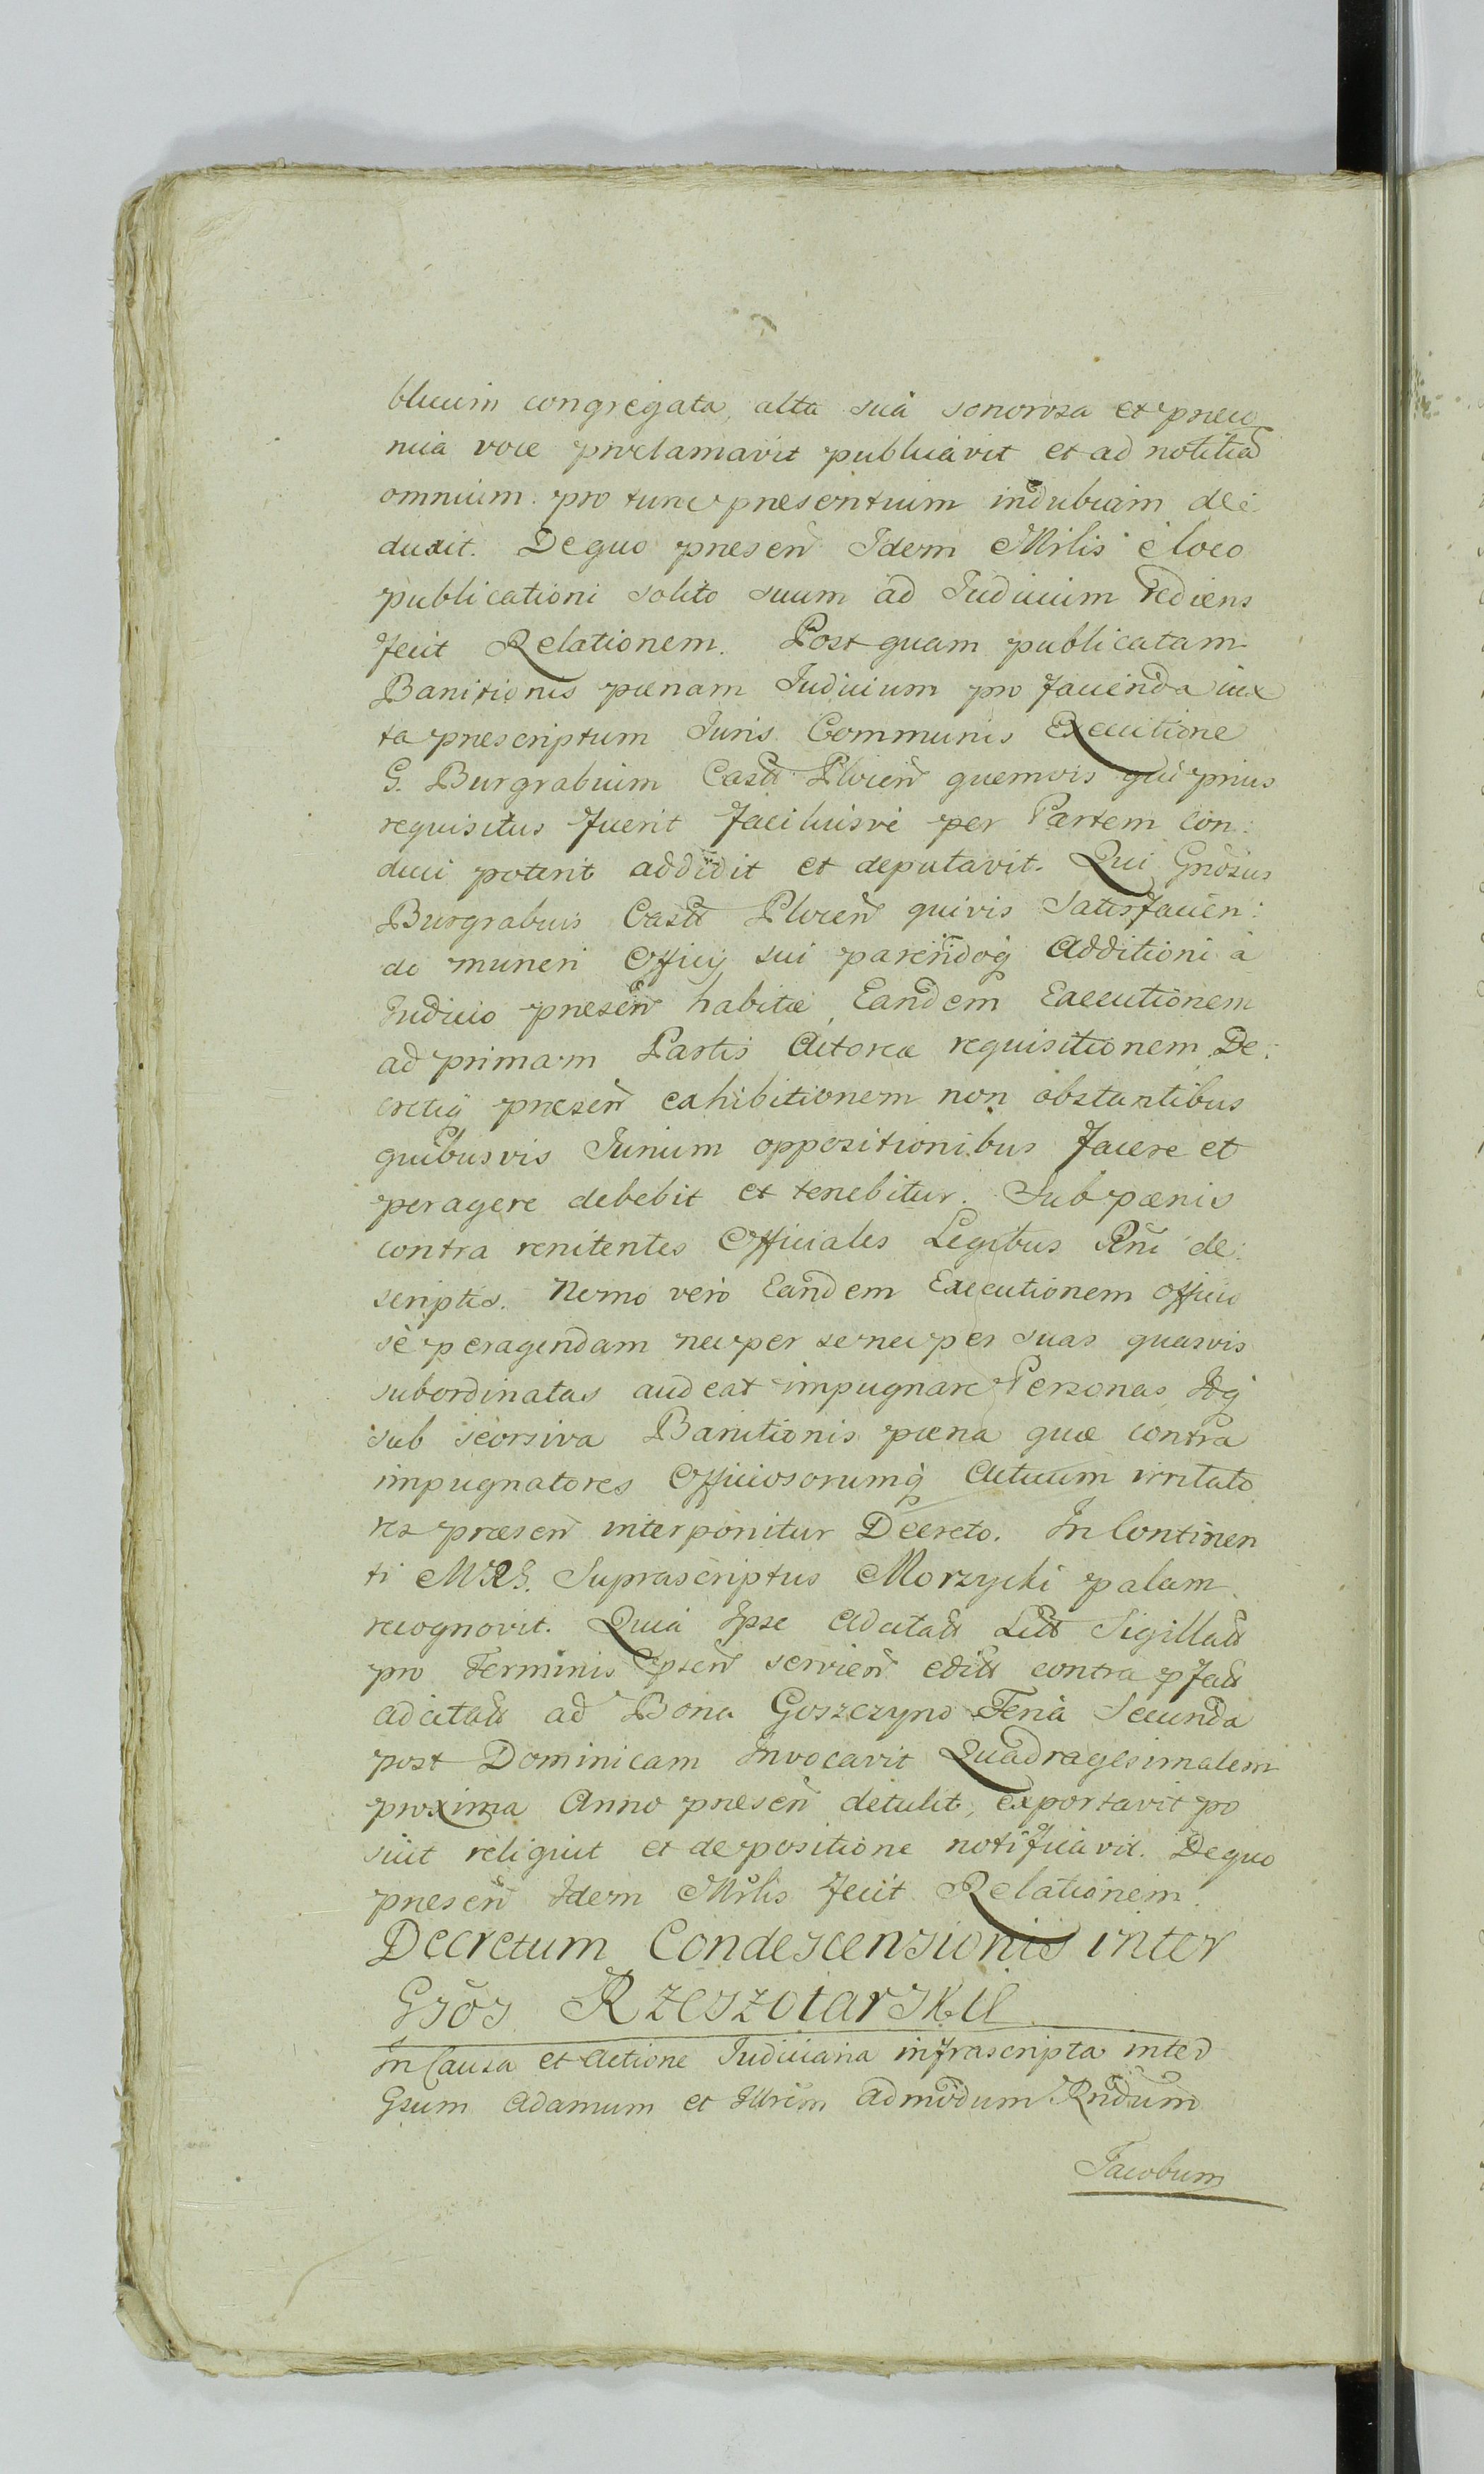 blicum congregata, alta sua sonorosa et preco
nia voce proclamavit publicavit et ad notitiã
omnium pro tunc presentium indubiam de
duxit. De quo presen̄ Idem Mrlis e loco
publicationi solito suum ad Judicium rediens
fecit Relationem. Post quam publicatam
Banitionis pœnam Judicium pro facienda iux
ta prescriptum Juris Communis Executione
G. Burgrabium Castr̃ Plocen̄ quemvis qui prius
requisitus fuerit faciliusve per Partem con:
duci poterit addidit et deputavit. Qui Gnosus
Burgrabius Castr̃ Plocen̄ quivis satisfacien:
do muneri Officij sui parendoq̨ Additioni à
Judicio presen̄ habitæ, Eandem Executionem
ad primam Partis Actoreæ requisitionem De:
cretiq̨ presen̄ exhibitionem non obstantibus
quibusvis Jurium oppositionibus facere et
peragere debebit et tenebitur. Sub pœnis
contra renitentes Officiales Legibus Rñi de:
scriptis. Nemo vero Eandem Executionem officio
sè peragendam nec per se nec per suas quasvis
subordinatas audeat impugnare Personas, Idq̨
sub seorsiva Banitionis pœna quæ contra
impugnatores Officiosorumq̨ Actuum irritato
res præsen̄ interponitur Decreto. In Continen
ti MRS. Suprascriptus Morzycki palam
recognovit. Quia Ipse Adcitatt Litt Sigillatt
pro Terminis Ipsen̄ servien̄ editt contra pfatt
adcitatt ad Bona Goszczyno Feria Secunda
post Dominicam Invocavit Quadragesimalem
proxima Anno presen̄ detulit, exportavit po
suit reliquit et de positione notificavit. De quo
presen̄ Idem Mrlis fecit Relationem.
Decretum Condescensionis inter
Gsos Rzeszotarskie
In Causa et Actione Judiciaria infrascripta inter
Gsum Adamum et Illrem admodum Rndum
Jacobum